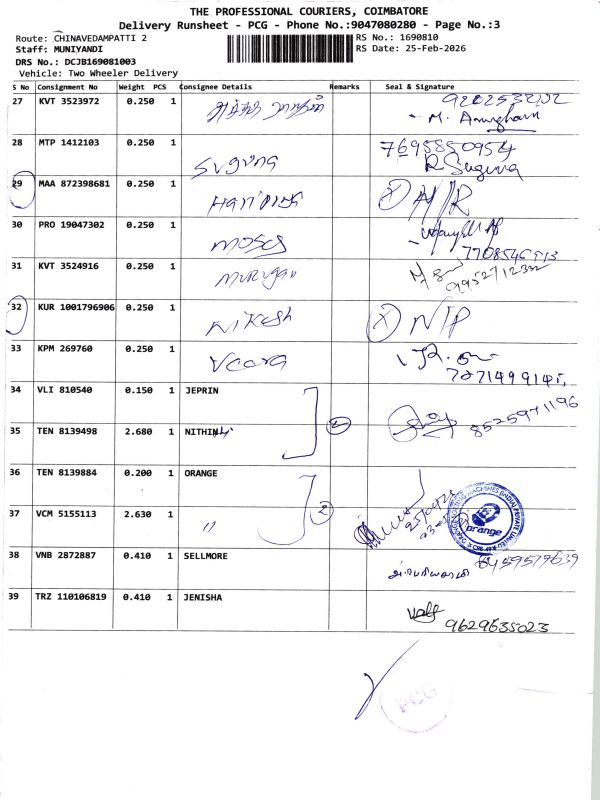 THE PROFESSIONAL COURIERS, COIMBATORE
Delivery Runsheet - PCG - Phone No.:9047080280 - Page No.:3
Route: CHINAVEDAMPATTI 2
RS No.: 1690810
Staff: MUNIYANDI
RS Date: 25-Feb-2026
DRS No.: DCJB169081003
Vehicle: Two Wheeler Delivery
S No Consignment No Weight PCS Consignee Details Remarks Seal & Signature
27 KVT 3523972 0.250 1
28 MTP 1412103 0.250 1 Suguna 7695850954
R Suguna
29 MAA 872398681 0.250 1 Harrish X
30 PRO 19047302 0.250 1 moses
31 KVT 3524916 0.250 1 murugan
32 KUR 1001796906 0.250 1 Nikesh X N/P
33 KPM 269760 0.250 1 Veera
34 VLI 810540 0.150 1 JEPRIN
35 TEN 8139498 2.680 1 NITHIN 2 8525971196
36 TEN 8139884 0.200 1 ORANGE
37 VCM 5155113 2.630 1 " 2 orange
38 VNB 2872887 0.410 1 SELLMORE
39 TRZ 110106819 0.410 1 JENISHA
9629635023
PCG